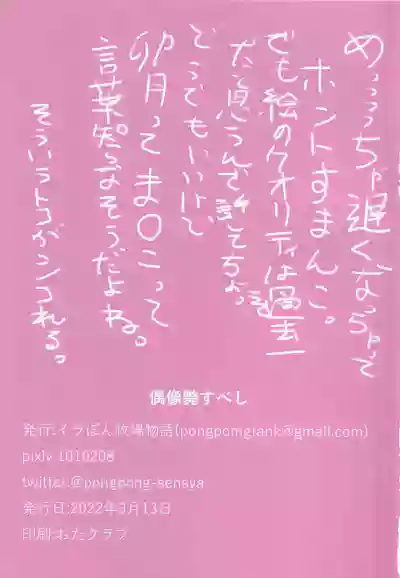 めっっっちゃ遅くなっちゃって
ホントすまんこ。
でも絵のクオリティは過去一
だと思うんで許してちょ。
どうでもいいけど
卯月ってま〇こって
言葉知らなそうだよね。
そういうトコがシコれる。
偶像艶すべし
発行:イラぽん牧場物語(pongpomgiank@gmail.com)
pixiv 1010208
twitter:@pongpong-sensya
発行日:2022年3月13日
印刷:おたクラブ